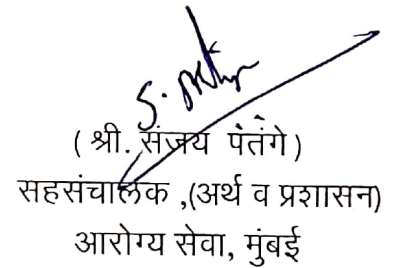 ( श्री. संजय पंतंगे )
सहसंचालक ,(अर्थ व प्रशासन)
आरोग्य सेवा, मुंबई